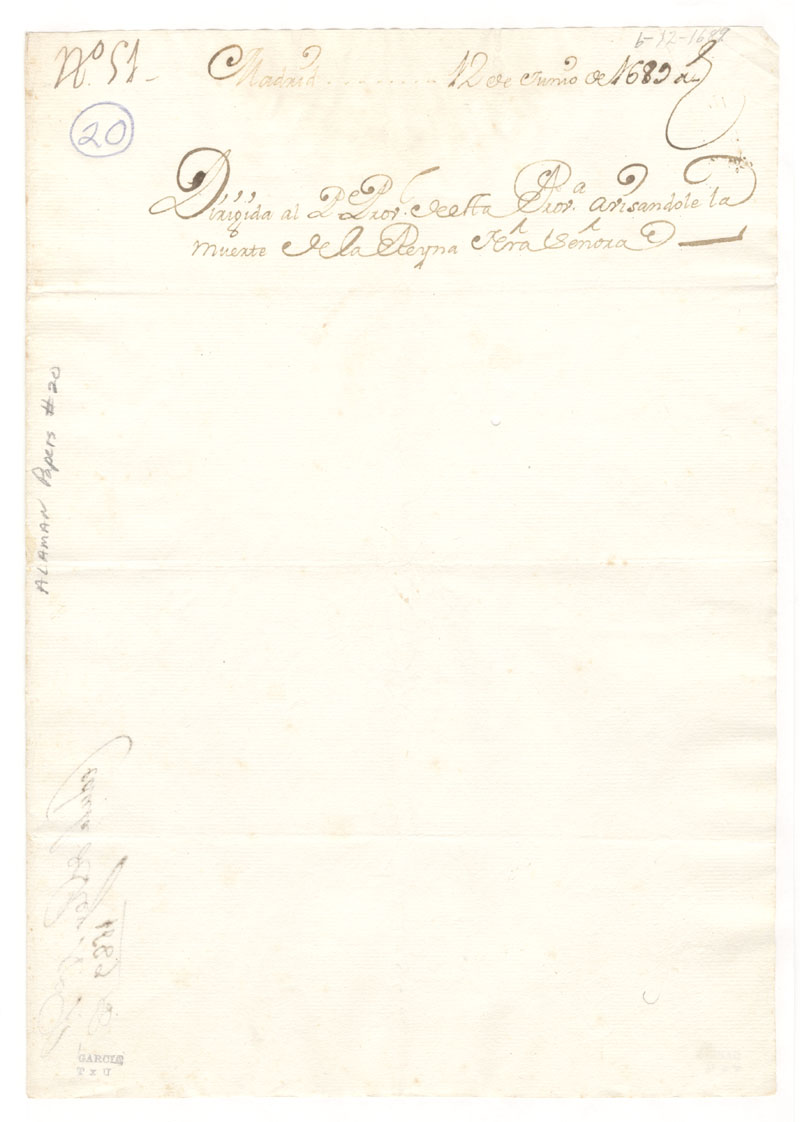 6-12-1689
Nº 51-
Madrid . . . . . . . . 12 de Junio de 1689 aˢ
20
Dirigida al P.e Prov.l de esta Prov.a avisandole la
muerte de la Reyna Nr̃a Señora
ALAMAN Papers #20
1689
GARCIA
T x U